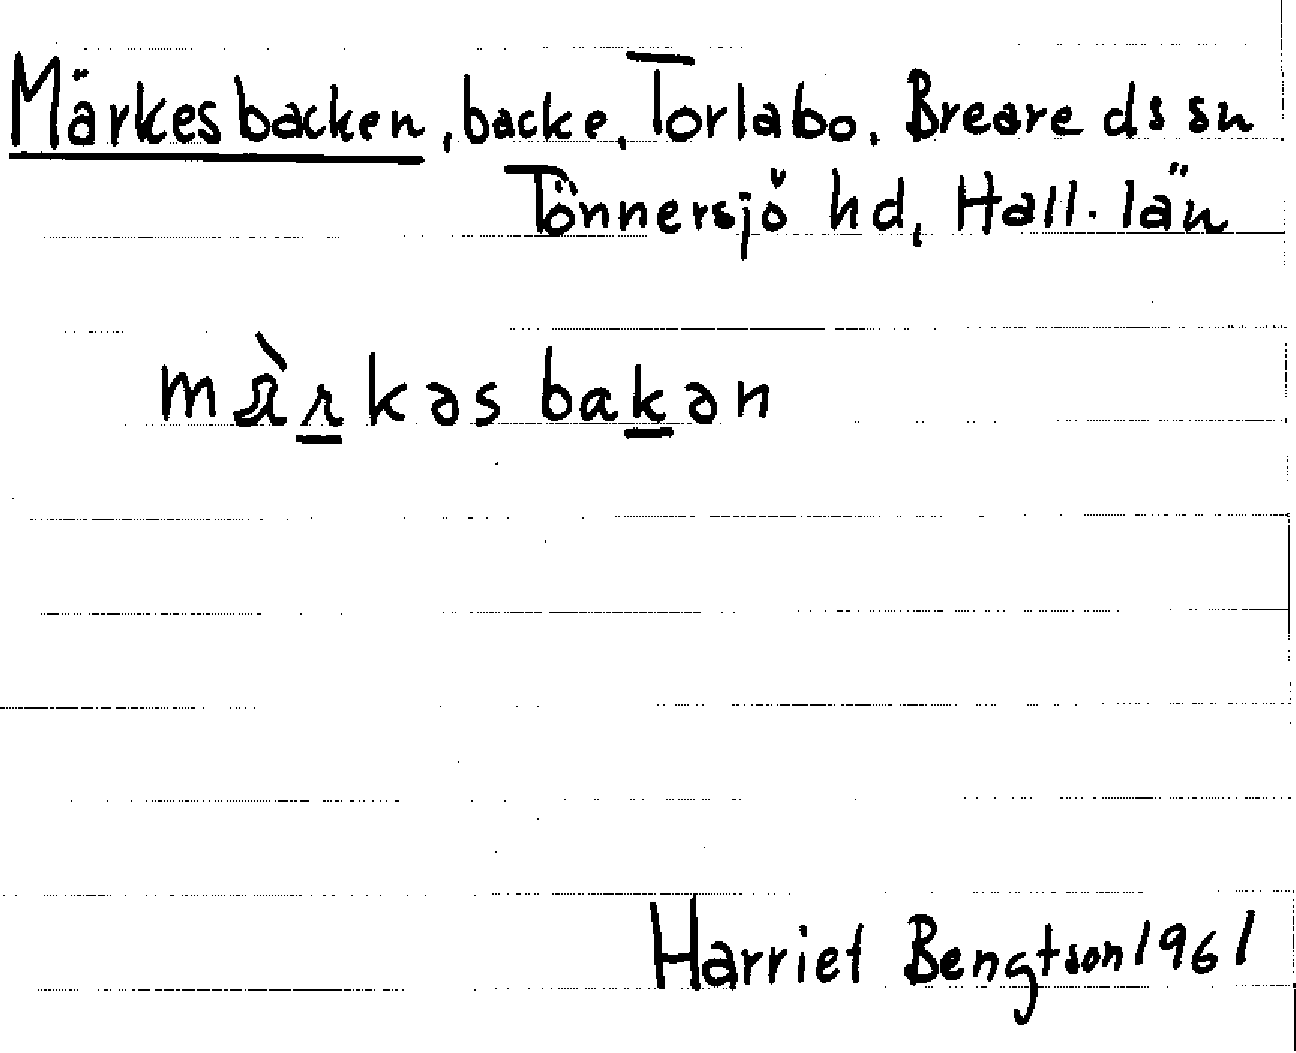 Märkesbacken, backe, Torlabo, Breare ds sn
Tönnersjö hd, Hall. län
mä̀rkəs bakən
Harriet Bengtson 1961